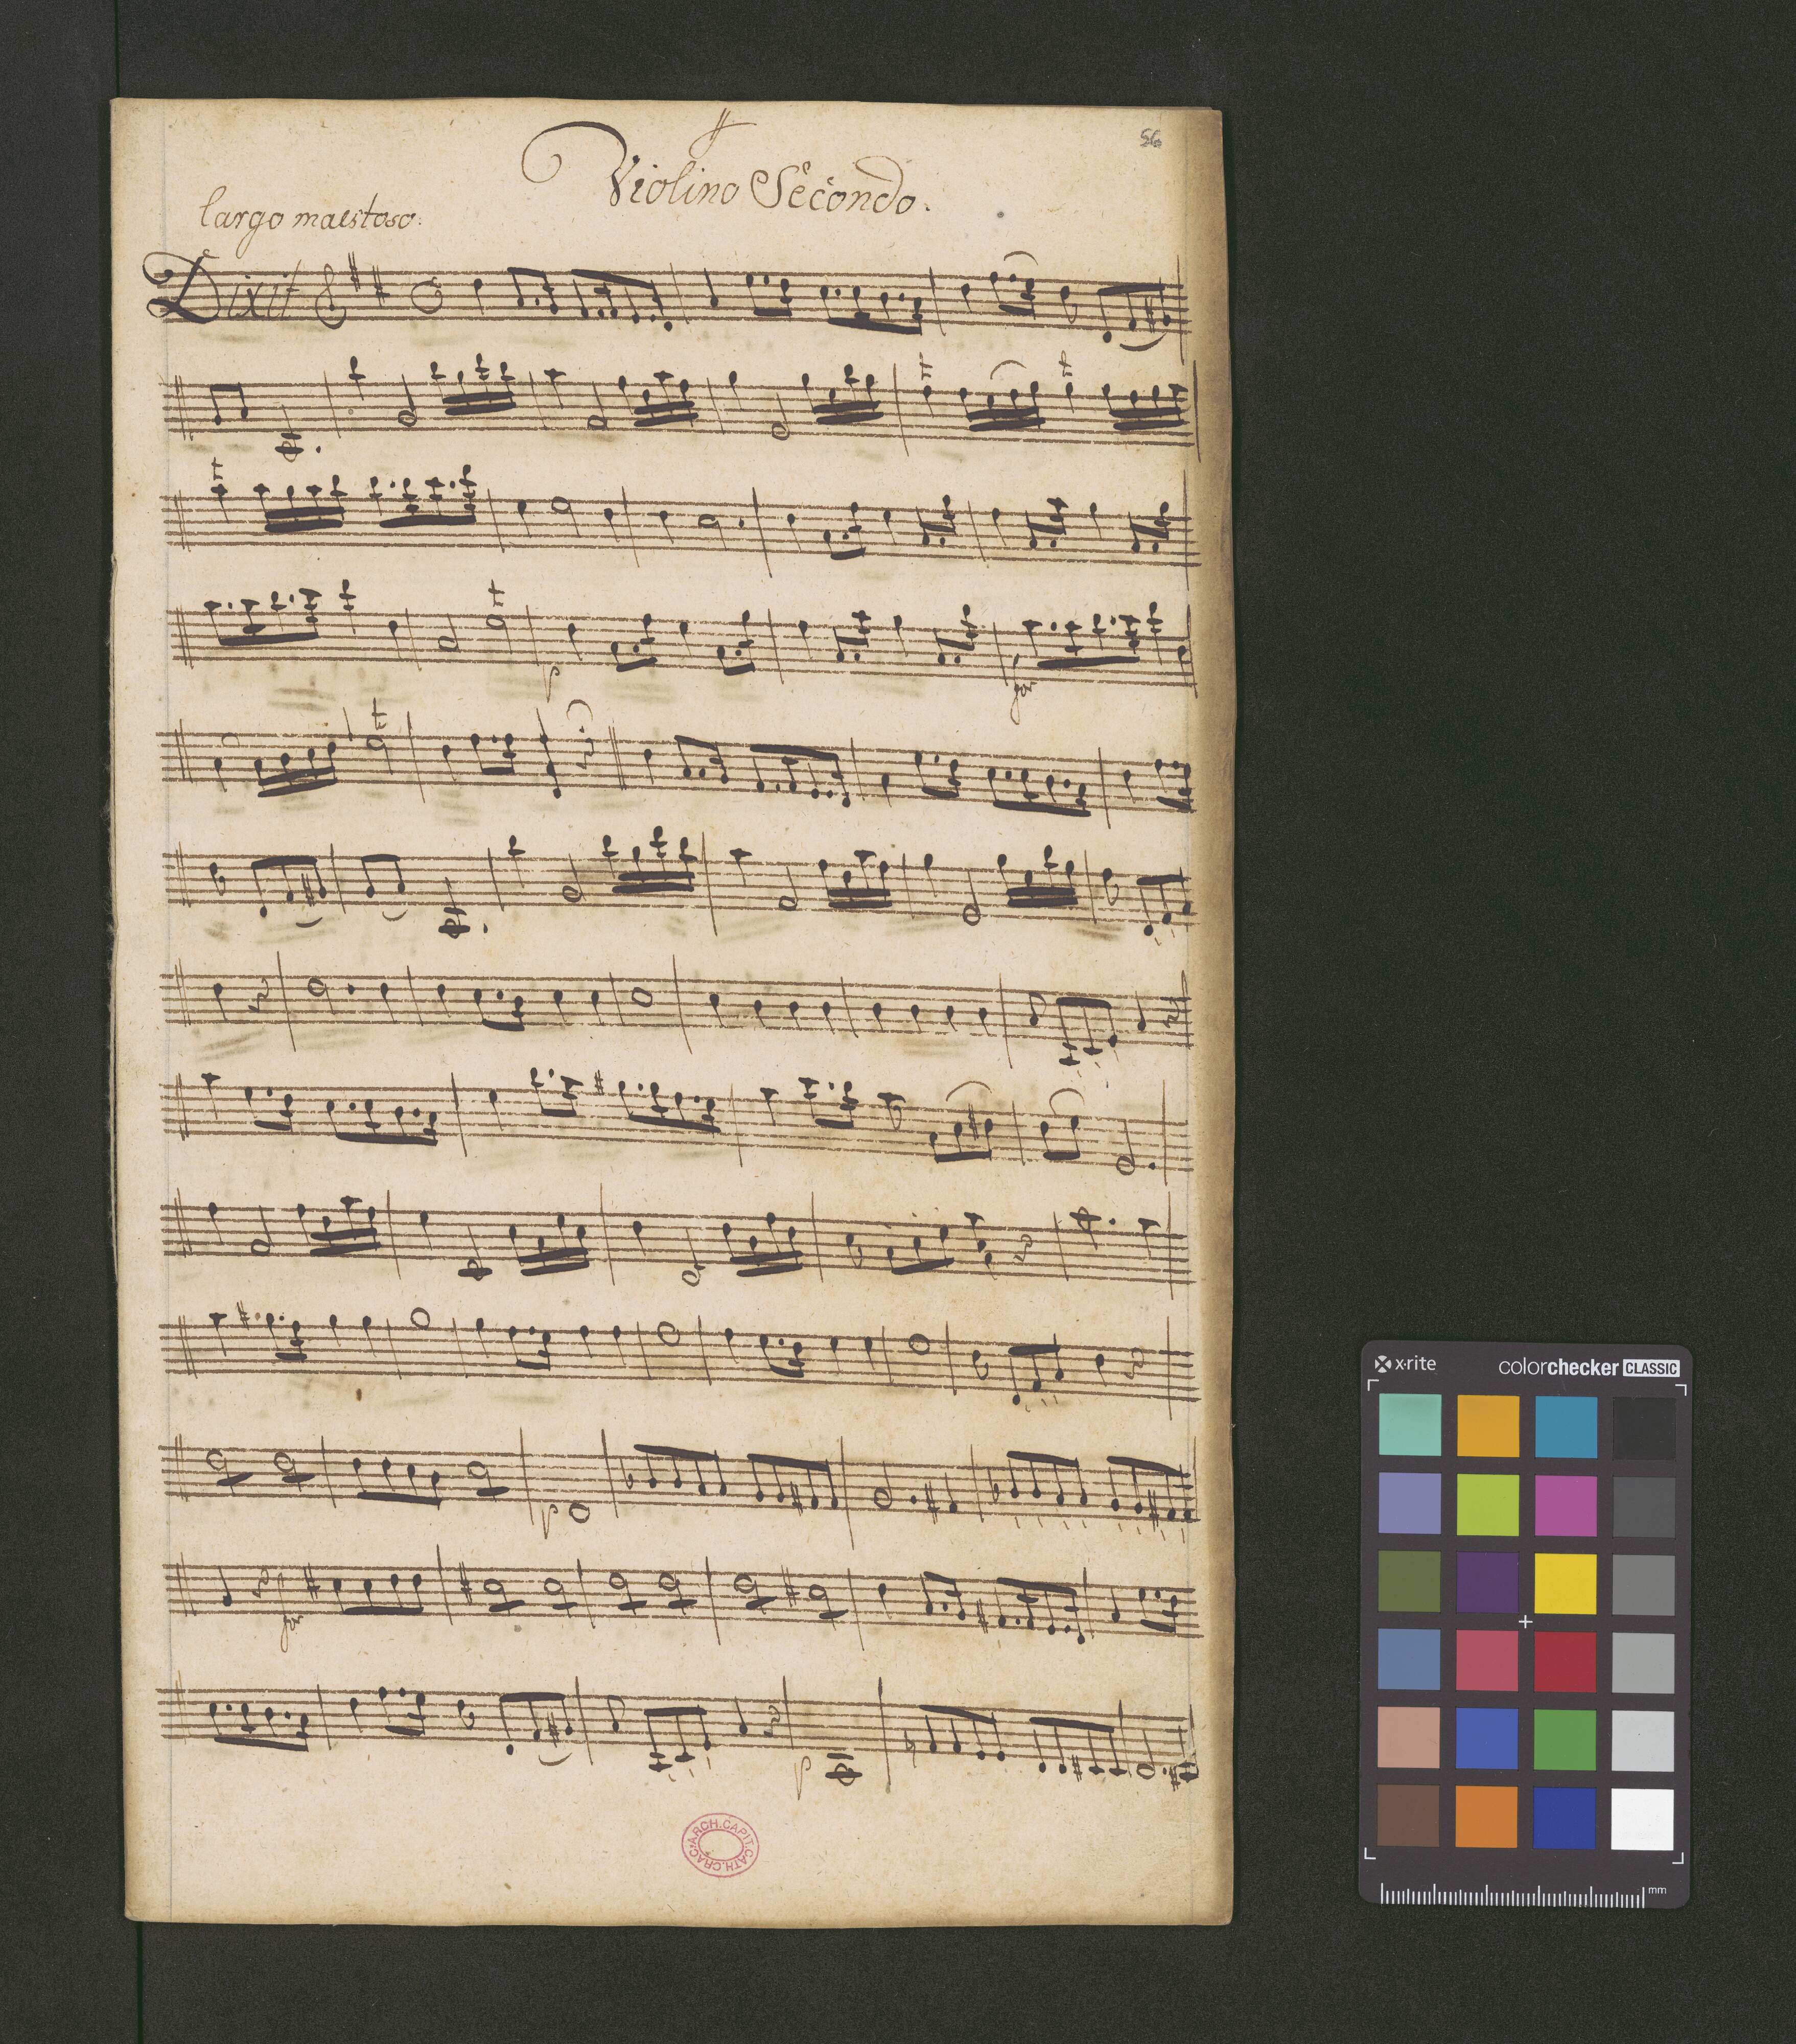 56
Violino Secondo.
largo maestoso:
Dixit
p
for
p
for
p
ARCH.CAPIT.CATH.CRAC.
x·rite
colorchecker CLASSIC
mm